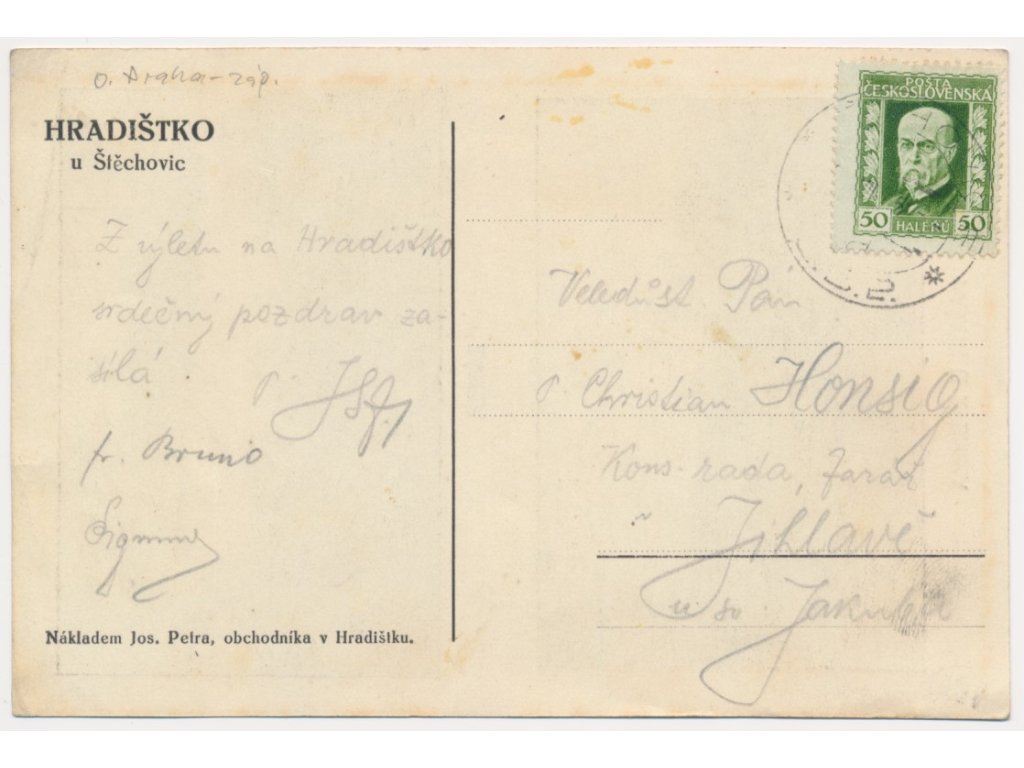 o. Praha-záp.
HRADIŠTKO
u Štěchovic
Z výletu na Hradištko
srdečný pozdrav za-
sílá
fr. Bruno
Nákladem Jos. Petra, obchodníka v Hradištku.
POŠTA
ČESKOSLOVENSKÁ
50 HALÉŘŮ 50
Veledůst Pán
P. Christian Honsig
Kons. rada, farář
Jihlavě
u sv Jakuba